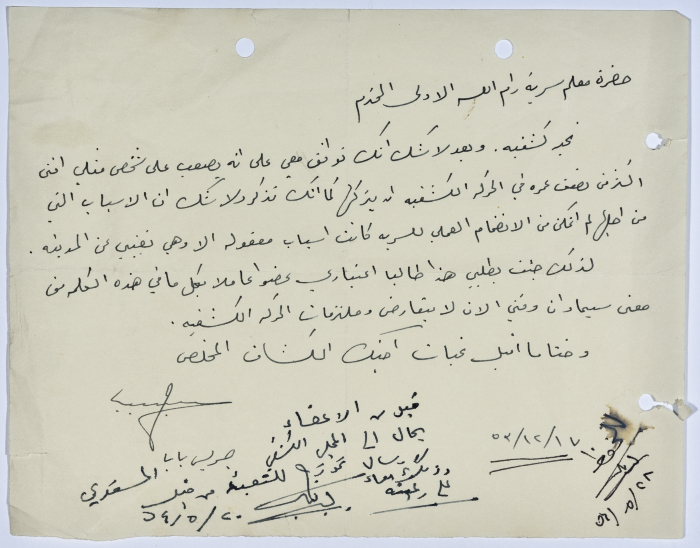 حضرة معلم سرية رام الله الاولى المحترم
تحية كشفيه. وبعد لا شك انك توافق معي على انه يصعب على شخص مثلي افنى
اكثر من نصف عمره في الحركة الكشفيه ان يتركها كما انك تذكر ولا شك ان الاسباب التي
من اجلها لم اتمكن من الانضمام العملي للسريه كانت اسباب معقوله الا وهي تغيبي عن المدينه .
لذلك جئت بطلبي هذا طالبا اعتباري عضوا عاملا بكل ما في هذه الكلمه من
معنى سيما وان وقتي الان لا يتعارض وملتزمات الحركة الكشفيه .
وختاما اقبل تحيات اخيك الكشاف المخلص
قبل من الاعضاء
يحال الى المجلس الكشفي
للشعبة من قبل
المسعودي
٥٣/١٢/١٧
٥٤/٥/٢٠